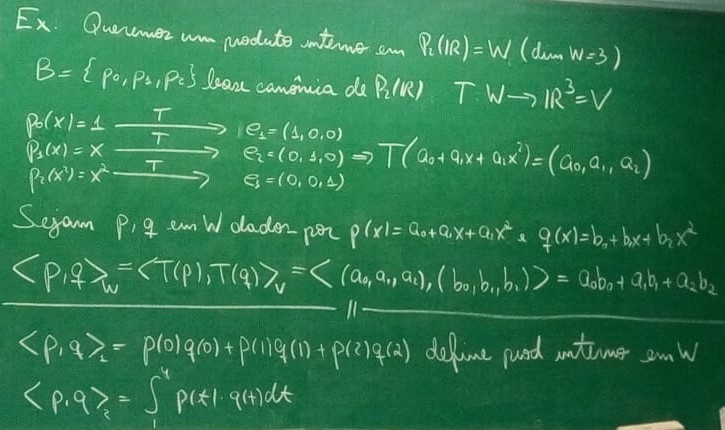 Ex. Queremos um produto interno em P₂(IR) = W (dim W = 3)
B = { p₀, p₁, p₂ } base canônica de P₂(IR) T: W → IR³ = V
p₀(x) = 1 —T→ e₁ = (1, 0, 0)
p₁(x) = x —T→ e₂ = (0, 1, 0) ⇒ T(a₀ + a₁x + a₂x²) = (a₀, a₁, a₂)
p₂(x²) = x² —T→ e₃ = (0, 0, 1)
Sejam p, q em W dados por p(x) = a₀ + a₁x + a₂x² e q(x) = b₀ + b₁x + b₂x²
<p, q>_W = <T(p), T(q)>_V = <(a₀, a₁, a₂), (b₀, b₁, b₂)> = a₀b₀ + a₁b₁ + a₂b₂
— // —
<p, q>₁ = p(0)q(0) + p(1)q(1) + p(2)q(2) define prod interno em W
<p, q>₂ = ∫₁⁴ p(t) · q(t) dt